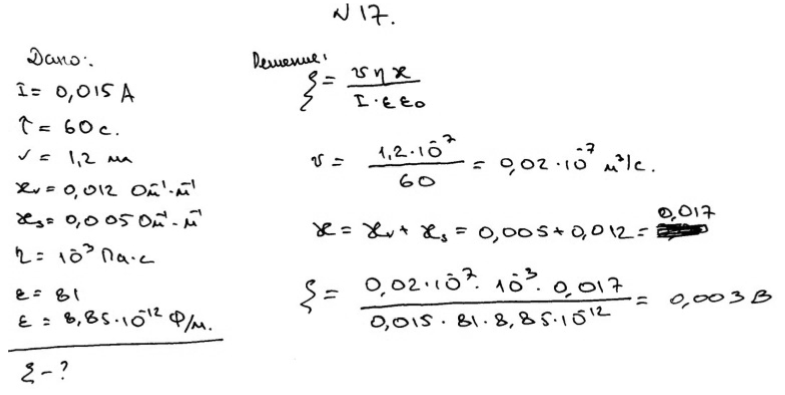 N 17.
Дано:
I = 0,015 А
τ = 60 с.
v = 1,2 мл
ϰv = 0,012 Ом⁻¹·м⁻¹
ϰs = 0,005 Ом⁻¹·м⁻¹
η = 10⁻³ Па·с
ε = 81
ε = 8,85·10⁻¹² Ф/м.
ξ - ?
Решение:
ξ = υηϰ / I·εε₀
υ = 1,2·10⁻⁷ / 60 = 0,02·10⁻⁷ м³/с.
ϰ = ϰv + ϰs = 0,005 + 0,012 = 0,017
ξ = 0,02·10⁻⁷·10⁻³·0,017 / 0,015·81·8,85·10⁻¹² = 0,003 В